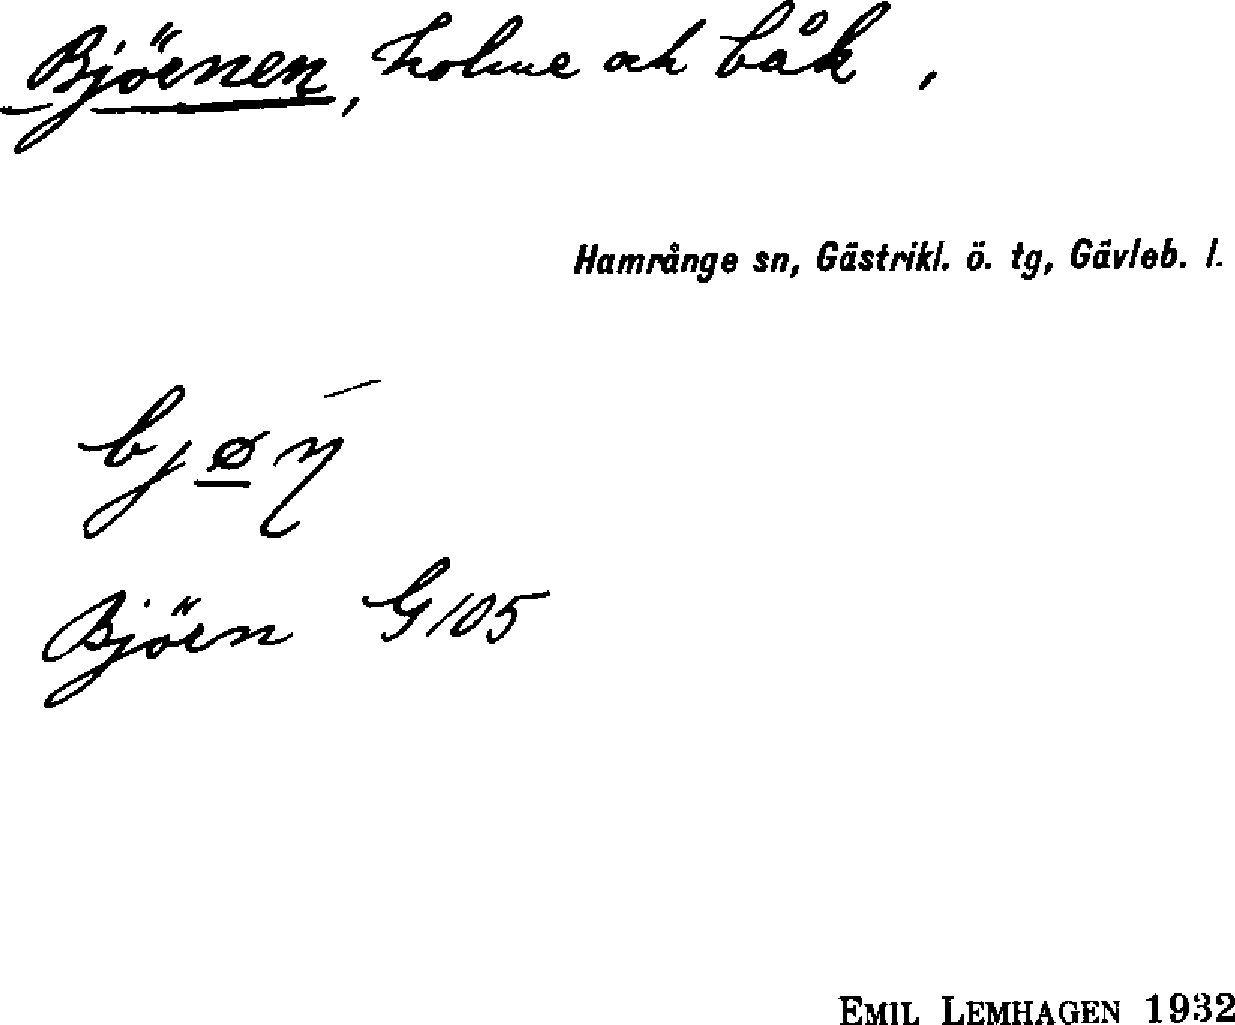 Björnen, holme och båk,
Hamrånge sn, Gästrikl. ö. tg, Gävleb. l.
Björn G 105
EMIL LEMHAGEN 1932